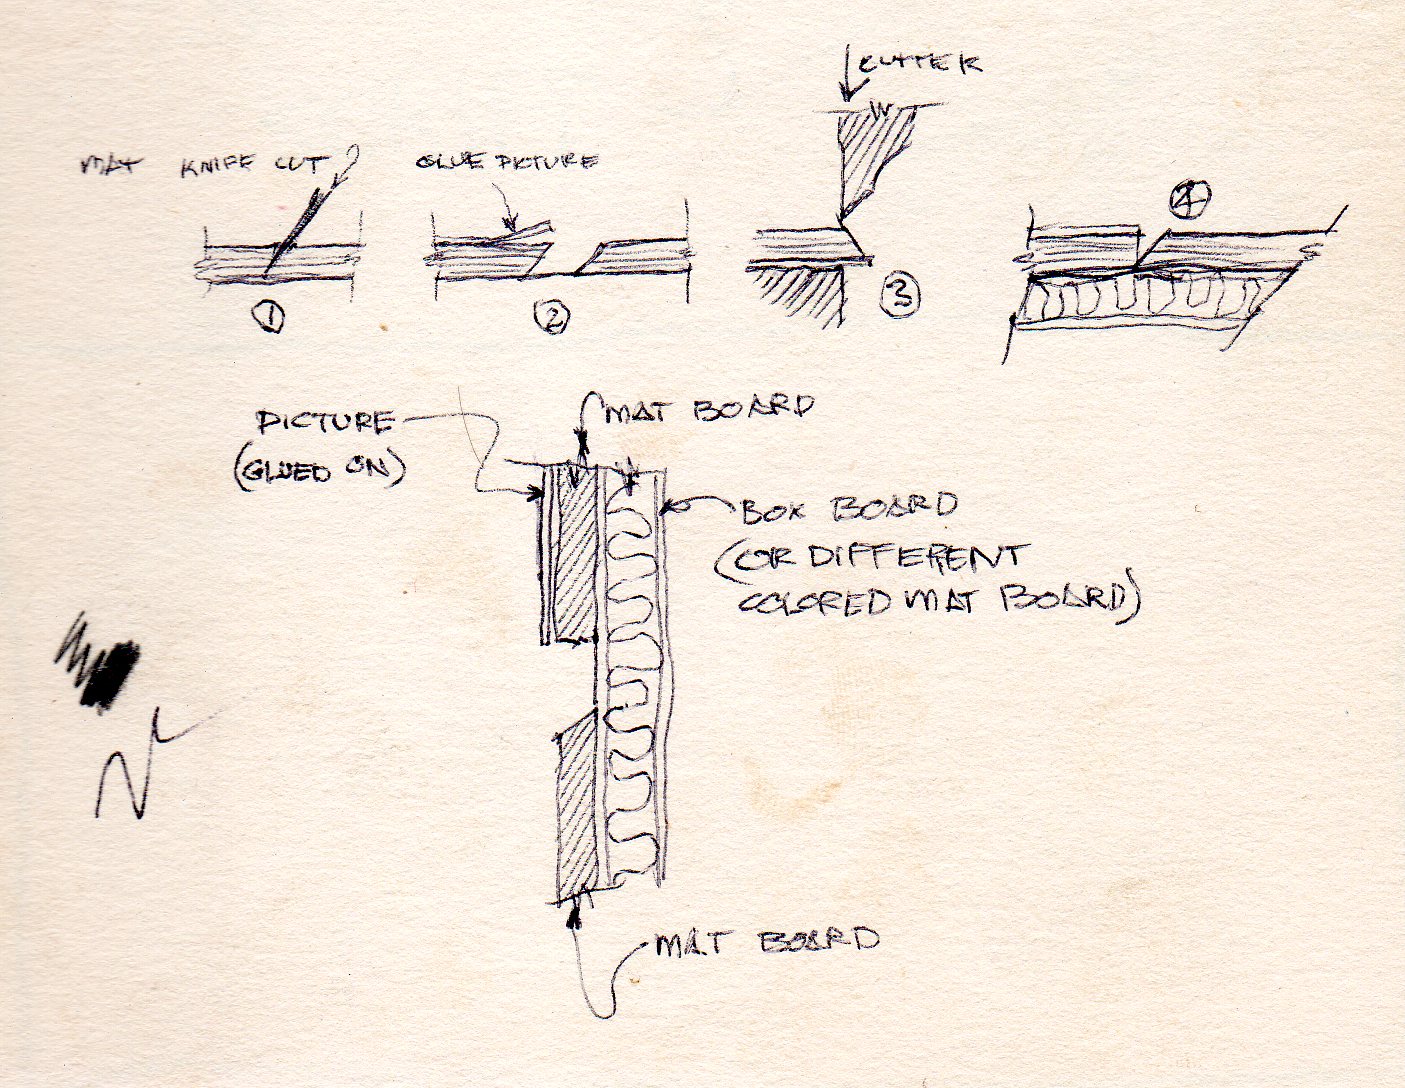 CUTTER
MAT KNIFE CUT
GLUE PICTURE
1
2
3
4
PICTURE
(GLUED ON)
MAT BOARD
BOX BOARD
(OR DIFFERENT
COLORED MAT BOARD)
MAT BOARD